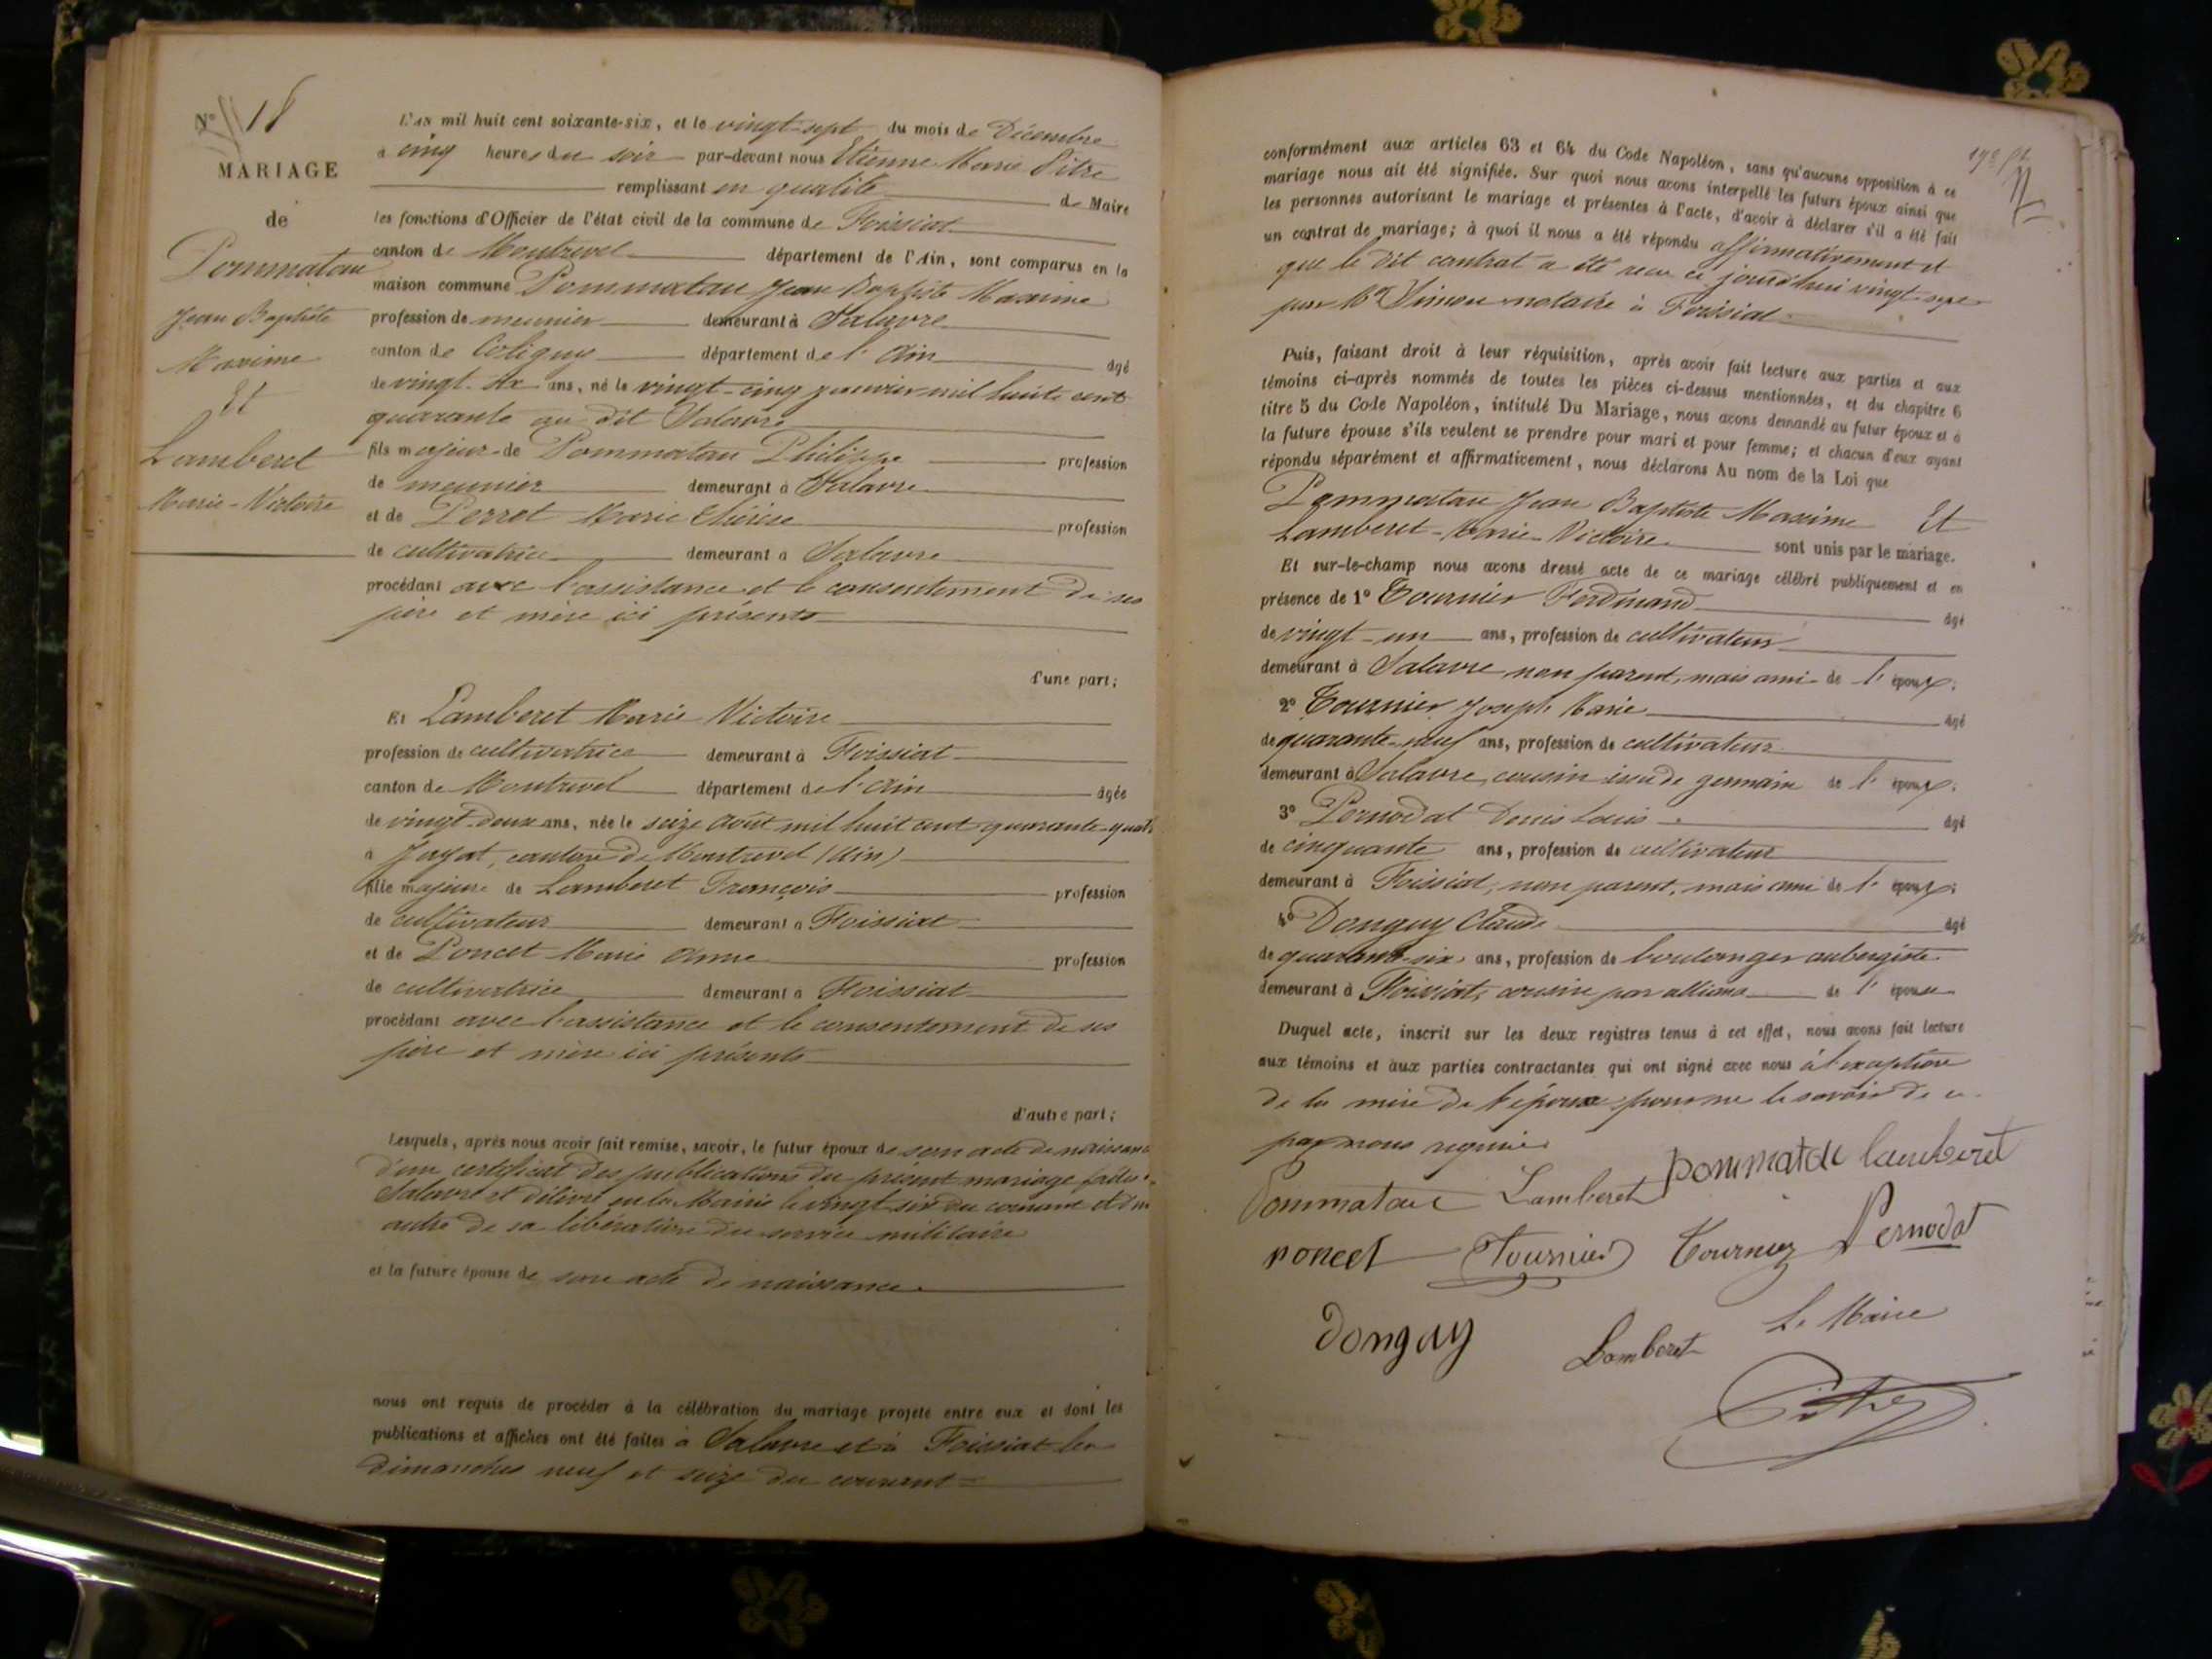 N° 18
MARIAGE
de
Pommatau
Jean Baptiste
Maxime
Et
Lamberet
Marie-Victoire
L'AN mil huit cent soixante-six, et le vingt-sept du mois de Décembre
à cinq heures du soir par-devant nous Etienne Marie Pitre
remplissant en qualité de Maire
les fonctions d'Officier de l'état civil de la commune de Foissiat
canton de Montrevel département de l'Ain, sont comparus en la
maison commune Pommatau Jean Baptiste Maxime
profession de meunier demeurant à Salavre
canton de Coligny département de l'Ain âgé
de vingt-six ans, né le vingt-cinq janvier mil huit cent
quarante au dit Salavre
fils majeur de Pommatau Philippe profession
de meunier demeurant à Salavre
et de Perret Marie Thérèse profession
de cultivatrice demeurant à Salavre
procédant avec l'assistance et le consentement de ses
père et mère ici présents
d'une part;
Et Lamberet Marie Victoire
profession de cultivatrice demeurant à Foissiat
canton de Montrevel département de l'Ain âgée
de vingt-deux ans, née le seize août mil huit cent quarante-quatre
à Jayat, canton de Montrevel (Ain)
fille majeure de Lamberet François profession
de cultivateur demeurant à Foissiat
et de Poncet Marie Anne profession
de cultivatrice demeurant à Foissiat
procédant avec l'assistance et le consentement de ses
père et mère ici présents
d'autre part;
Lesquels, après nous avoir fait remise, savoir, le futur époux de son acte de naissance
d'un certificat des publications du présent mariage faites à
Salavre et délivré en la Mairie le vingt six du courant et d'un
autre de sa libération du service militaire
et la future épouse de son acte de naissance.
nous ont requis de procéder à la célébration du mariage projeté entre eux et dont les
publications et affiches ont été faites à Salavre et à Foissiat les
dimanches neuf et seize du courant
conformément aux articles 63 et 64 du Code Napoléon, sans qu'aucune opposition à ce
mariage nous ait été signifiée. Sur quoi nous avons interpellé les futurs époux ainsi que
les personnes autorisant le mariage et présentes à l'acte, d'avoir à déclarer s'il a été fait
un contrat de mariage; à quoi il nous a été répondu affirmativement et
que le dit contrat a été reçu ce jourd'hui vingt-sept
par Me Simon notaire à Foissiat
Puis, faisant droit à leur réquisition, après avoir fait lecture aux parties et aux
témoins ci-après nommés de toutes les pièces ci-dessus mentionnées, et du chapitre 6
titre 5 du Code Napoléon, intitulé Du Mariage, nous avons demandé au futur époux et à
la future épouse s'ils veulent se prendre pour mari et pour femme; et chacun d'eux ayant
répondu séparément et affirmativement, nous déclarons Au nom de la Loi que
Pommatau Jean Baptiste Maxime Et
Lamberet-Marie-Victoire sont unis par le mariage.
Et sur-le-champ nous avons dressé acte de ce mariage célébré publiquement et en
présence de 1° Tournier Ferdinand âgé
de vingt-un ans, profession de cultivateur
demeurant à Salavre non parent, mais ami de l'époux;
2° Tournier Joseph Marie âgé
de quarante-neuf ans, profession de cultivateur
demeurant à Salavre, cousin issu de germain de l'époux;
3° Pernodat Denis Louis âgé
de cinquante ans, profession de cultivateur
demeurant à Foissiat, non parent, mais ami de l'époux;
4° Donguy Claude âgé
de quarante-six ans, profession de boulanger aubergiste
demeurant à Foissiat, cousin par alliance de l'épouse
Duquel acte, inscrit sur les deux registres tenus à cet effet, nous avons fait lecture
aux témoins et aux parties contractantes qui ont signé avec nous à l'exception
de la mère de l'époux pour ne le savoir de ce
par nous requise
Pommatau Lamberet Pommatau lamberet
poncet Tournier Tournier Pernodat
Donguy Lamberet Le Maire
Pitre